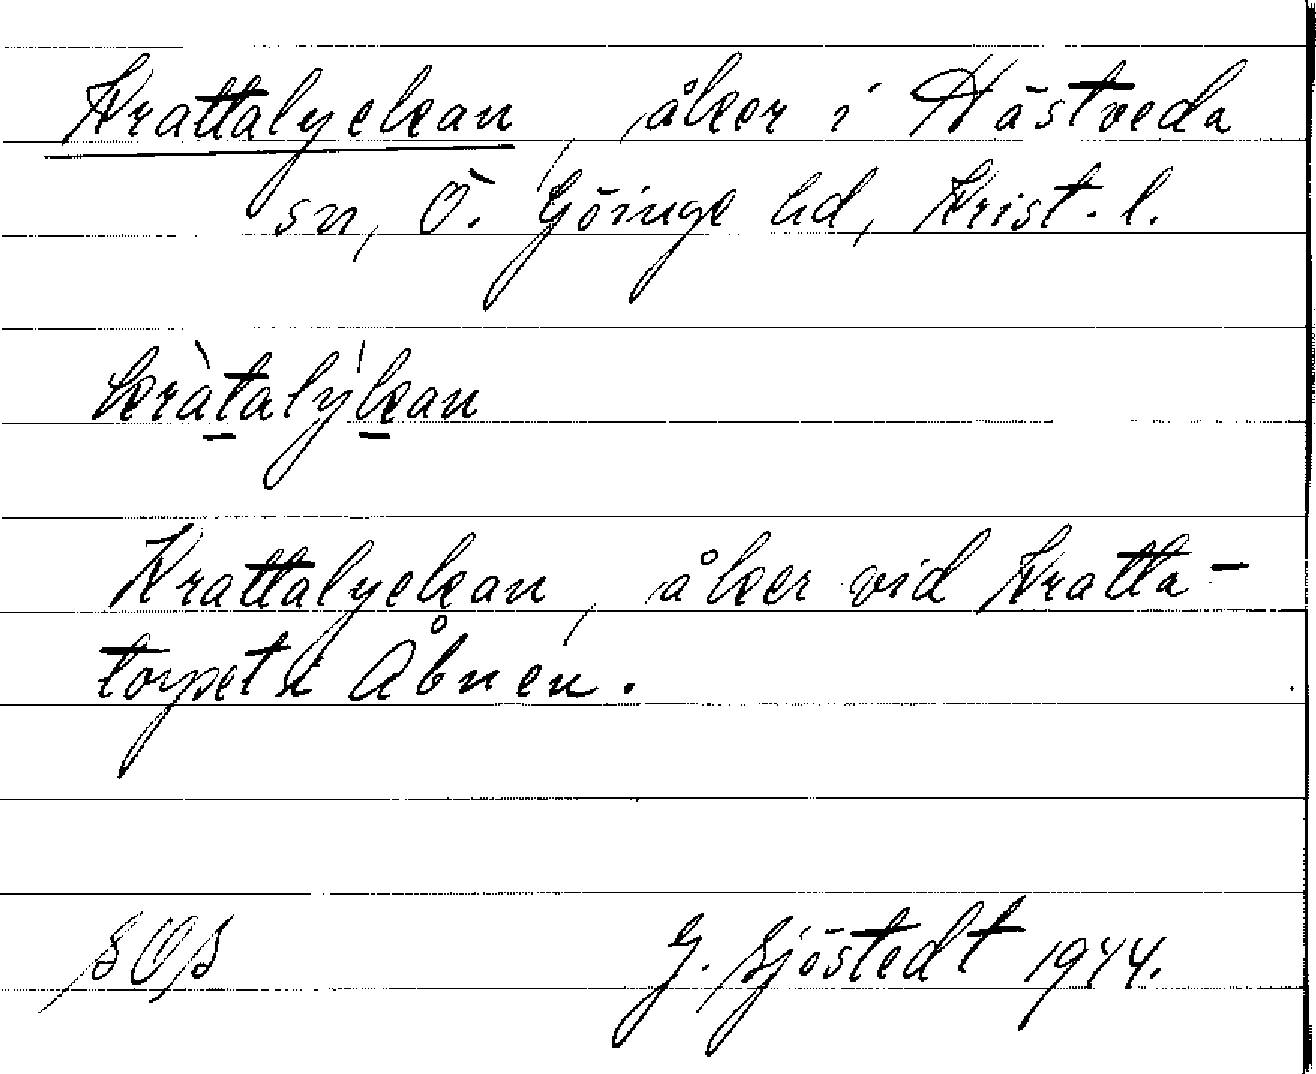 Krattalyckan, åker i Hästveda
sn, Ö. Göinge hd, Krist. l.
kràtalýkan
Krattalyckan, åker vid Kratta-
torpet i Åbnen.
SOS G. Sjöstedt 1944.